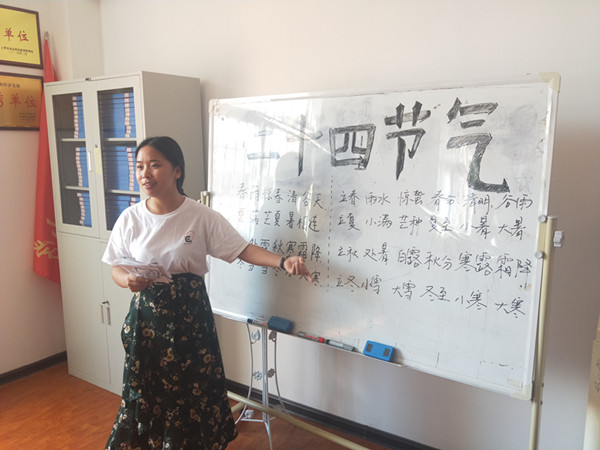 单位
单位
二十四节气
春雨惊春清谷天 立春 雨水 惊蛰 春分 清明 谷雨
夏满芒夏暑相连 立夏 小满 芒种 夏至 小暑 大暑
露秋寒霜降 立秋 处暑 白露 秋分 寒露 霜降
雪冬 大寒 立冬 小雪 大雪 冬至 小寒 大寒